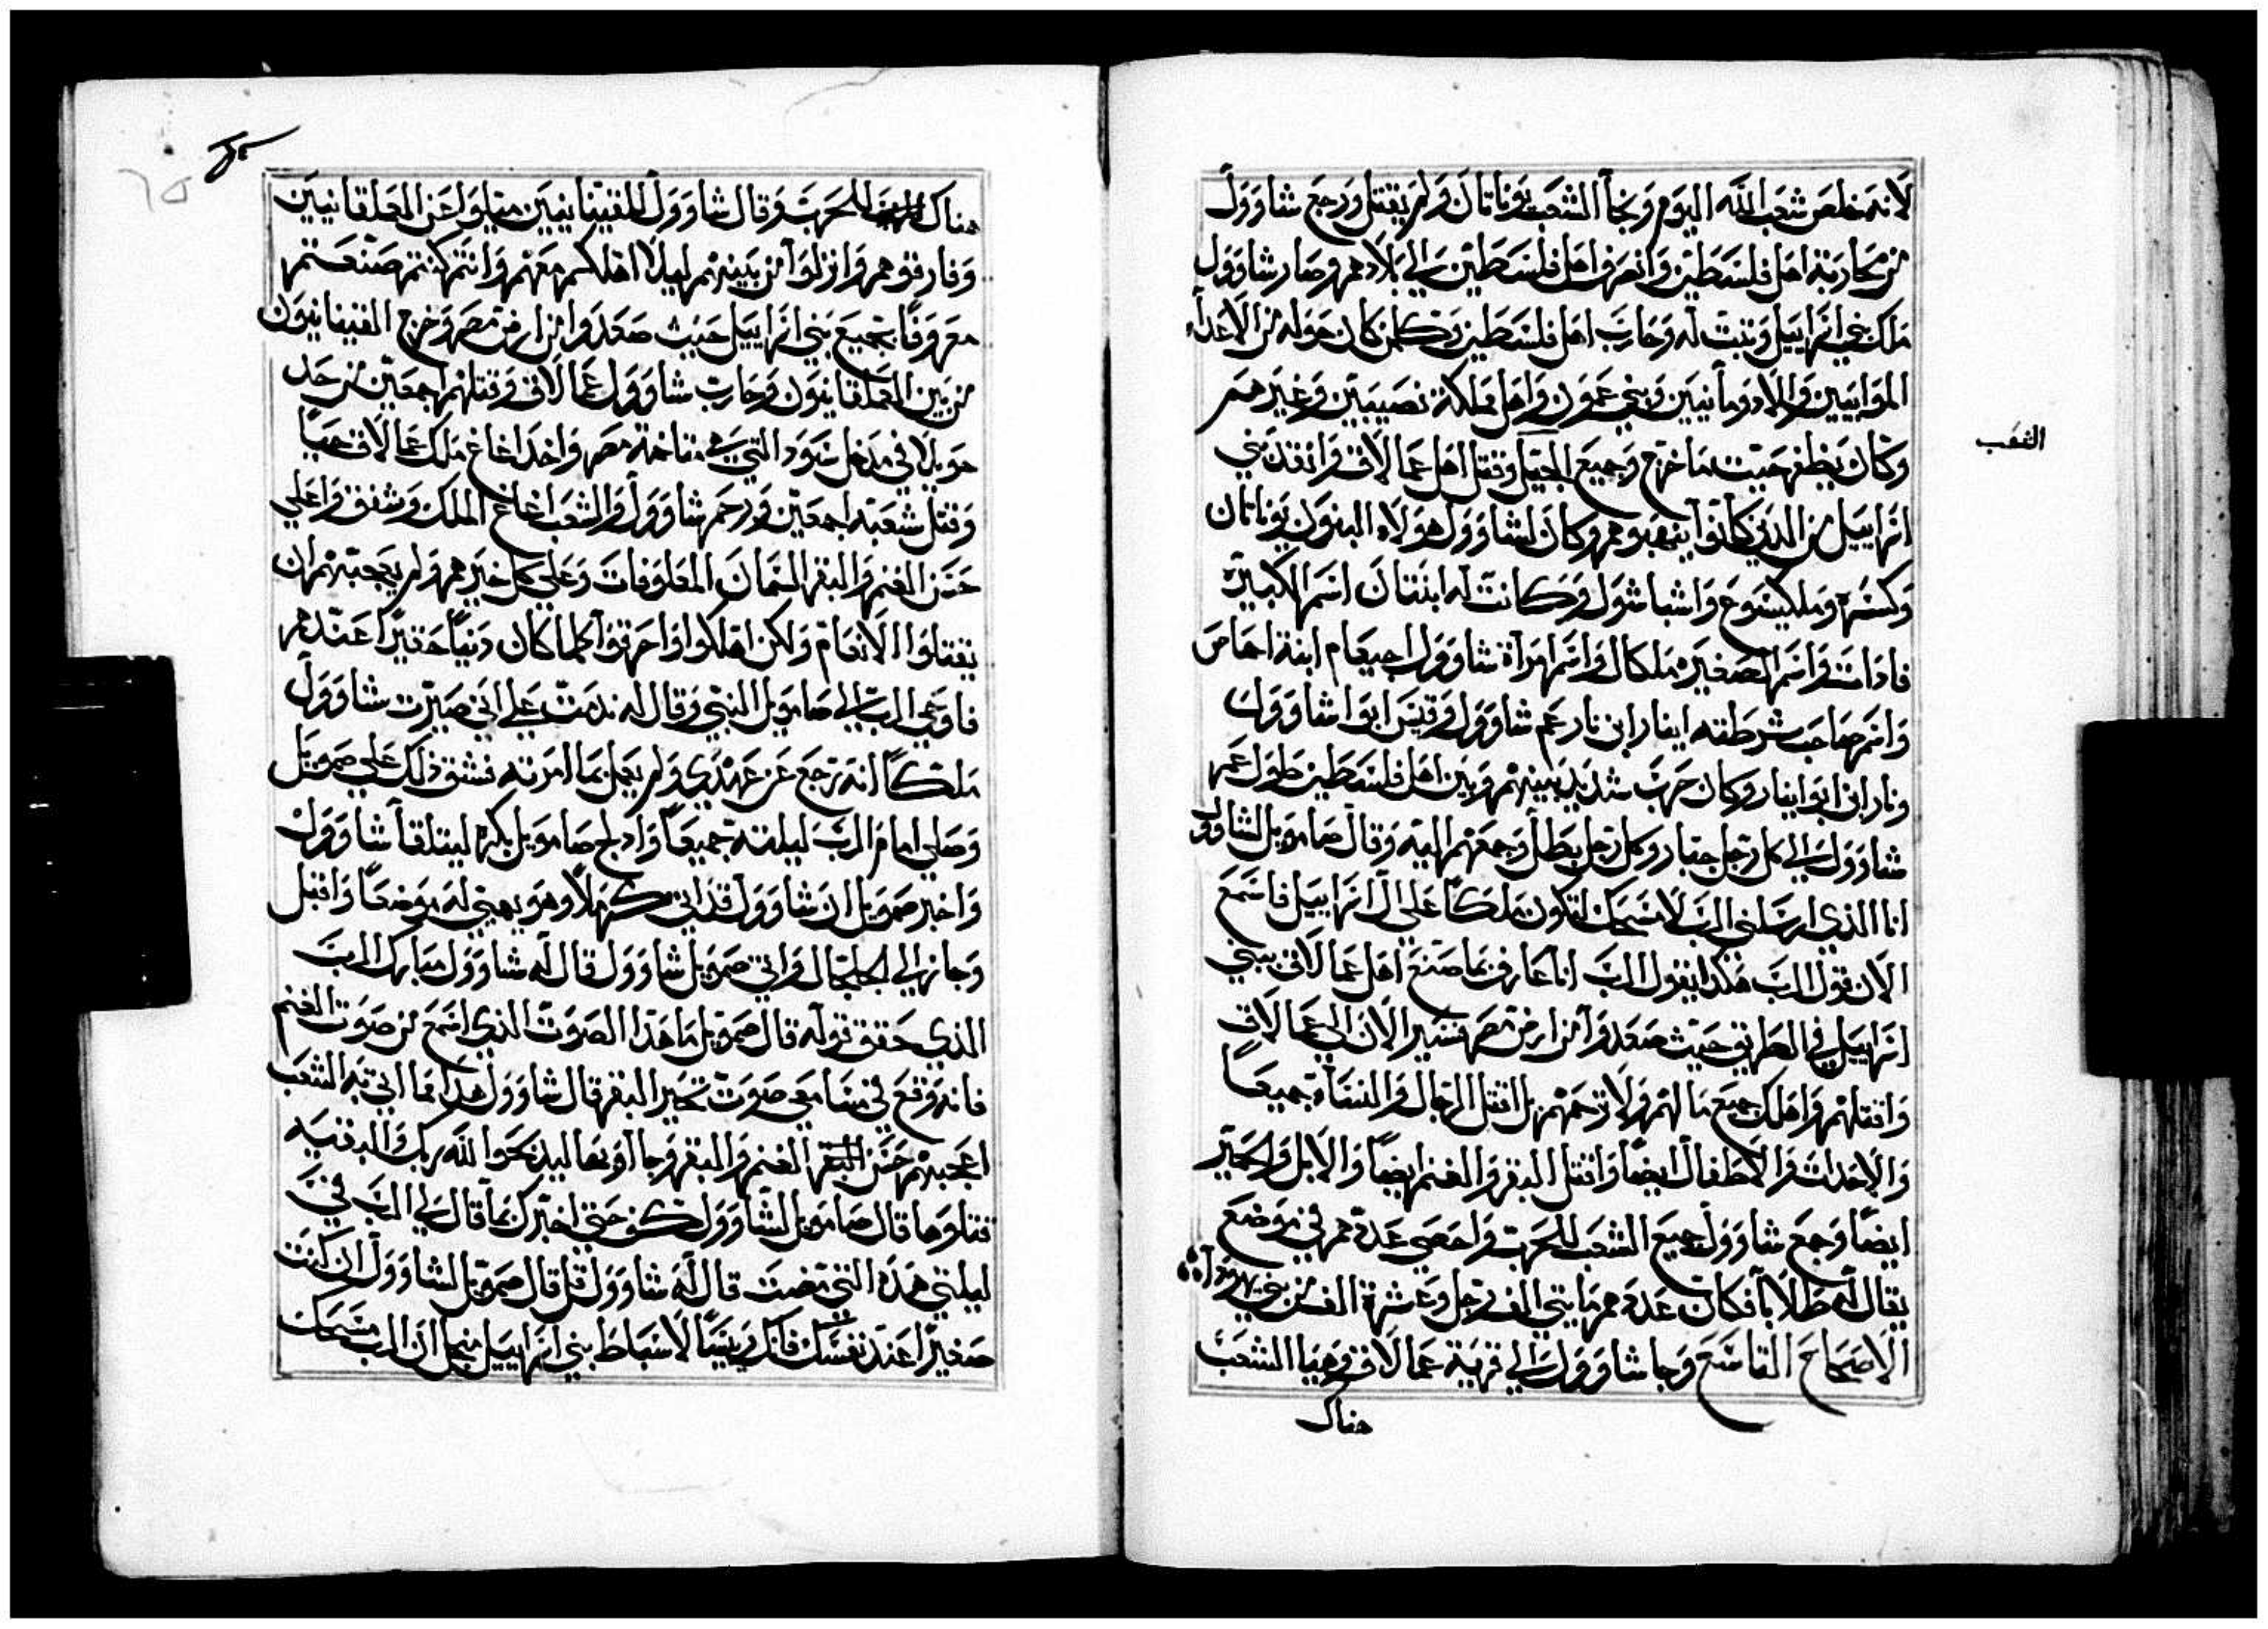 لانه خلص شعب الله اليوم ونجا الشعب يوناتان ولم يقتل ورجع شاوول
من محاربة اهل فلسطين وانصرفوا اهل فلسطين الي بلادهم وصار شاوول
ملك بني اسراييل وثبت له وحارب اهل فلسطين وكلمن كان حوله من الاعداء
الموابيين والادومانيين وبني عمون واهل مملكة نصيبين وغيرهم
وكان يظفر حيث ما خرج وجميع الجيل وقتل اهل عمالاق وانقذ بني
اسراييل من الذين كانوا ينهبوهم وكان لشاوول هولاء البنون يوناتان
وكسره وملكيشوع واشباشول وكانت له ابنتان اسم الكبيرة
فادات واسم الصغيره ملكال واسم امرأة شاوول اجيعام ابنة احماص
واسم صاحب شرطته ابنار ابن نار عم شاوول وقيس ابوا شاوول
ونار ابن ابوا ابنار وكان حرب شديد بينهم وبين اهل فلسطين طول عمر
شاوول الي كل رجل جبار وكل رجل بطل وجمعهم اليه وقال صامويل لشاوول
انا الذي ارسلني الرب لامسحك لتكون ملكا علي ال اسراييل فاسمع
الان قول الرب هكذا يقول الرب انا عارف بما صنع اهل عمالاق ببني
اسراييل في الطريق حيث صعدوا من ارض مصر فسير الان الي عمالاق
واقتلهم واهلك جميع مالهم ولا ترحمهم بل اقتل الرجال والنساء جميعا
والاحداث والاطفال ايضا واقتل البقر والغنم ايضا والابل والحمير
ايضا وجمع شاوول جميع الشعب للحرب واحصي عدتهم في موضع
يقال له طلايا فكان عدتهم مايتي الف رجل وعشرة الف من بني يهودا
الاصحاح التاسع وجا شاوول الي قرية عمالاق وهيا الشعب
هناك
الشعب
هناك للحرب وقال شاوول للقينانيين ميلوا عن العملقانيين
وفارقوهم وانزلوا من بينهم ليلا اهلككم معهم وانتم كنتم صنعتم
معروفا بجميع بني اسراييل حيث صعدوا من ارض مصر وخرج القينانيون
من بين العملقانيون وحارب شاوول عمالاق وقتلهم اجمعين من حد
حويلا في مدخل سود التي في متاخمة مصر واخذ اغاغ ملك عمالاق حيا
وقتل شعبه اجمعين ورحم شاوول والشعب اغاغ الملك وشفقوا علي
حسن الغنم والبقر السمان المعلوفات وعلي كل خيرهم ولم يعجبهم ان
يقتلوا الانعام ولكن اهلكوا واحرقوا كلما كان دنيا حقيرا عندهم
فاوحي الرب الي صامويل النبي وقال له ندمت علي اني صيرت شاوول
ملكا لنه رجع عن عهدي ولم يعمل بما امرته فشق ذلك علي صمويل
وصلي امام الرب ليلته جميعا وادلج صامويل بكره ليتلقا شاوول
واخبر صمويل ان شاوول قد اتي كرملا وهو يهيي له موضعا واقبل
وجاز الي الجلجال واتي صمويل شاوول قال له شاوول مبارك الرب
الذي حقق قوله قال صمويل ما هذا الصوت الذي اسمع من صوت الغنم
فانه وقع في مسامعي صوت تخير البقر قال شاوول هذا مما اتي به الشعب
اعجبهم حسن الغنم والبقر وجاأو بها ليذبحوا لله ربك والبقيه
قتلوها قال صامويل لشاوول كف حتي اخبرك بما قال لي الرب في
ليلتي هذه التي مضت قال له شاوول قل قال صمويل لشاوول ان كنت
صغيرا عند نفسك فانك رييسا لاسباط بني اسراييل من اجل ان الرب مسحك